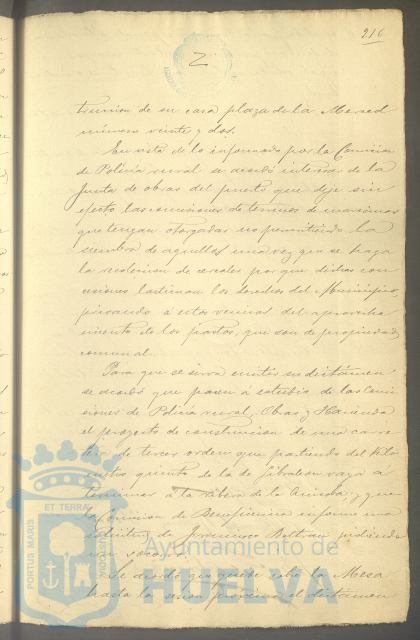 216
Z
trucion de su casa plaza de la Merced
número veinte y dos.
En vista de lo informado por la Comision
de Policia rural se acordó interesar de la
Junta de obras del puerto que deje sin
efecto las concesiones de terrenos de marismas
que tengan otorgadas no permitiendo la
siembra de aquellas una vez que se haga
la recoleccion de cereales por que dichas con
cesiones lastiman los derechos del Municipio,
privando á estos vecinos del aprovecha
miento de los pastos, que son de propiedad
comunal.
Para que se sirva emitir su dictámen
se acordó que pasen á estudio de las Comi
siones de Policia rural, Obras y Hacienda
el proyecto de construccion de una carre
tera de tercer orden que partiendo del Kiló
metro quinto de la de Gibraleon vaya á
terminar á la ribera de la Anicoba, y que
la Comision de Beneficencia informe una
solicitud de Francisco Beltran pidiendo
un socorro.
Se acordó que quede sobre la Mesa
hasta la sesion próxima el dictámen
PORTUS MARIS
ET TERRA
CUSTODIA
Ayuntamiento de
HUELVA